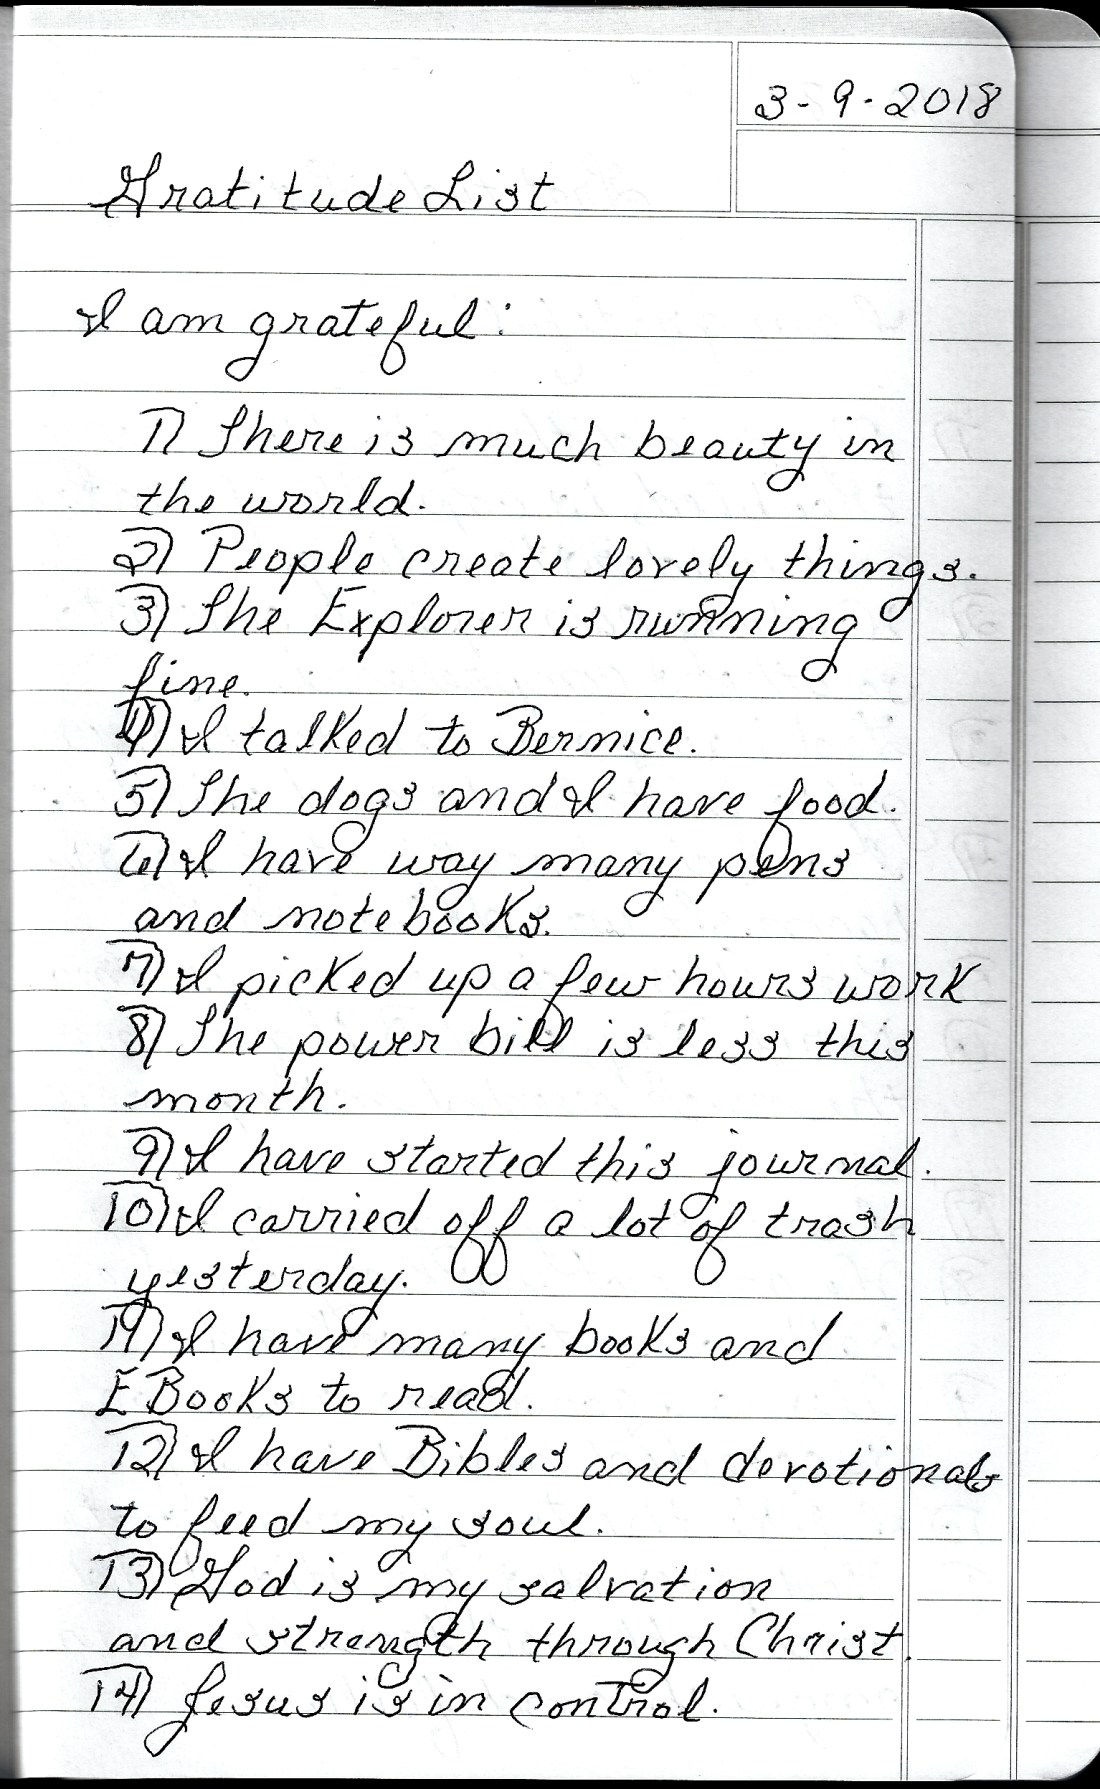 3-9-2018
Gratitude List
I am grateful:
1) There is much beauty in
the world.
2) People create lovely things.
3) The Explorer is running
fine.
4) I talked to Bernice.
5) The dogs and I have food.
6) I have way many pens
and notebooks.
7) I picked up a few hours work
8) The power bill is less this
month.
9) I have started this journal.
10) I carried off a lot of trash
yesterday.
11) I have many books and
EBooks to read.
12) I have Bibles and devotionals
to feed my soul.
13) God is my salvation
and strength through Christ.
14) Jesus is in control.